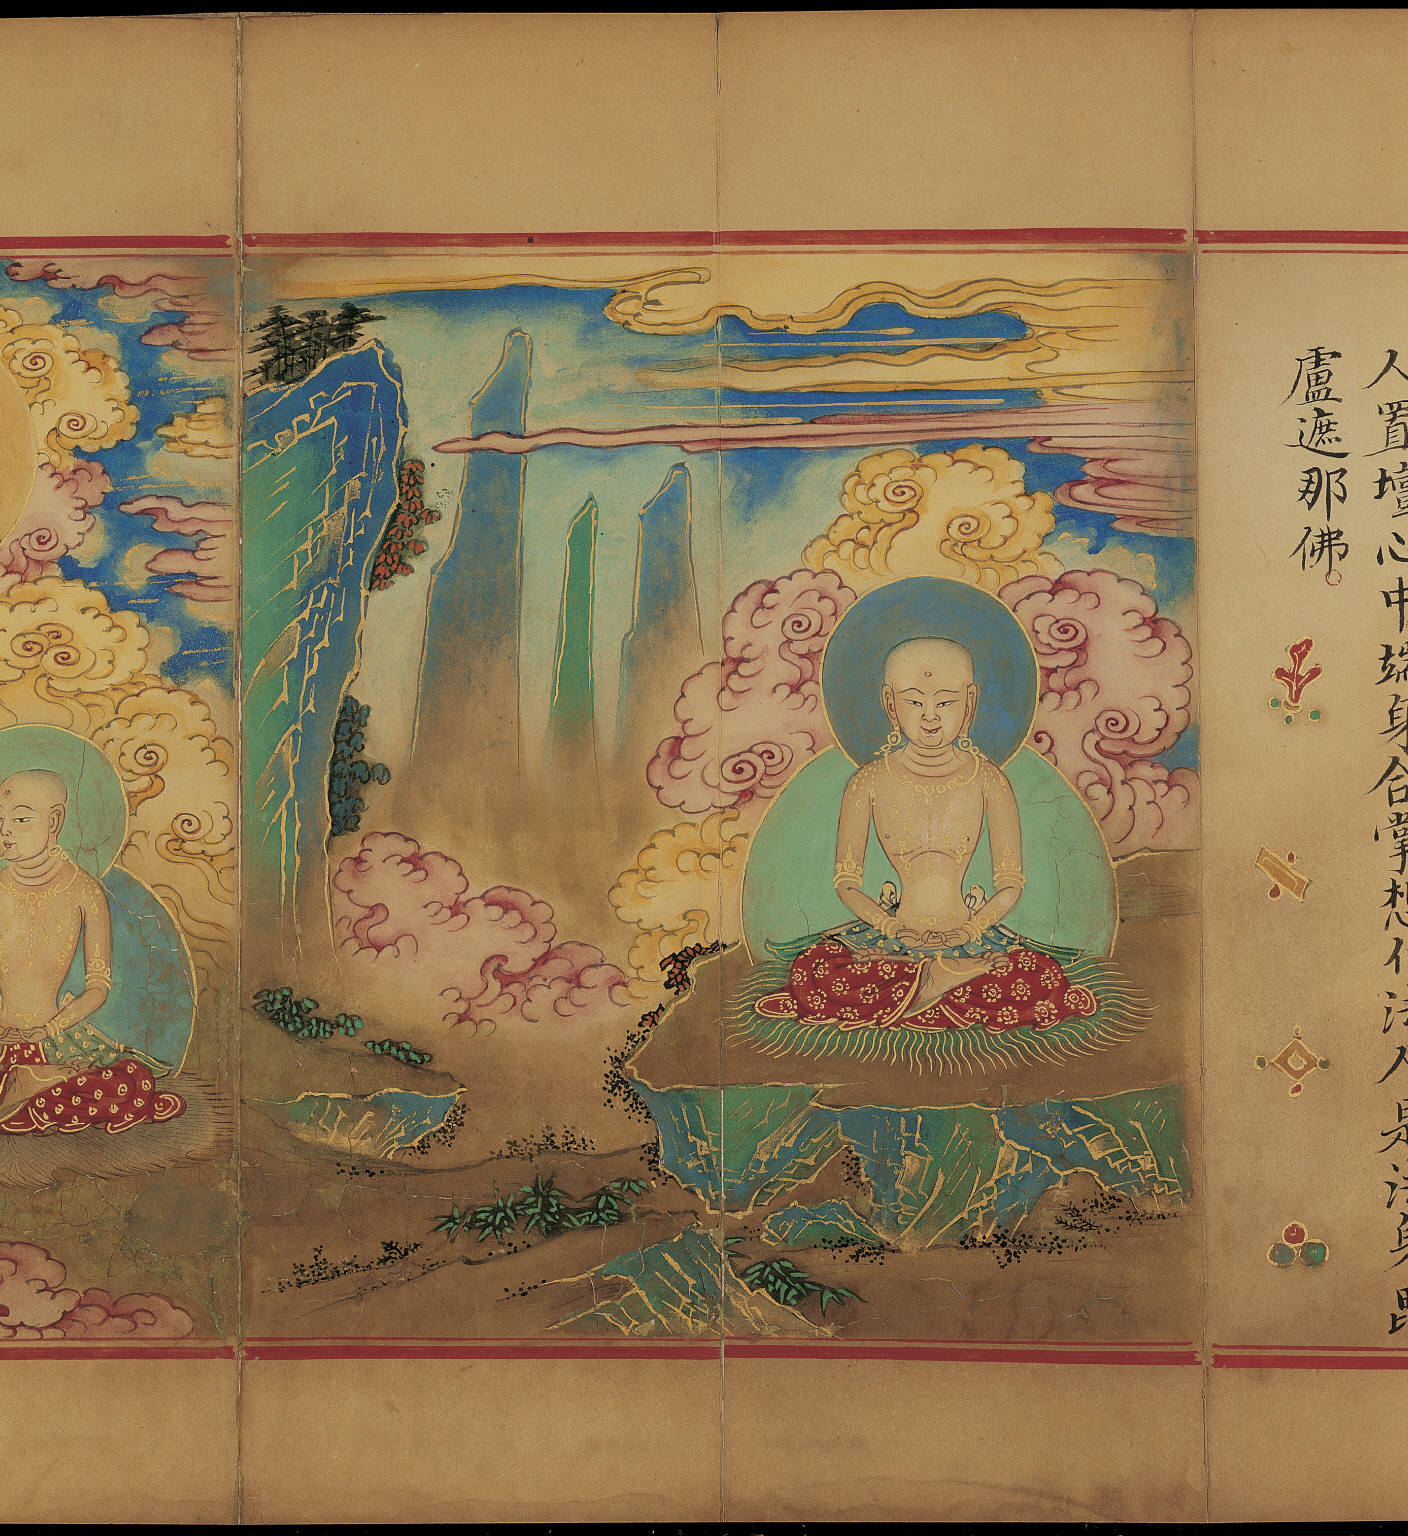 人置壇心中端身合掌想行法人是法身毘
盧遮那佛